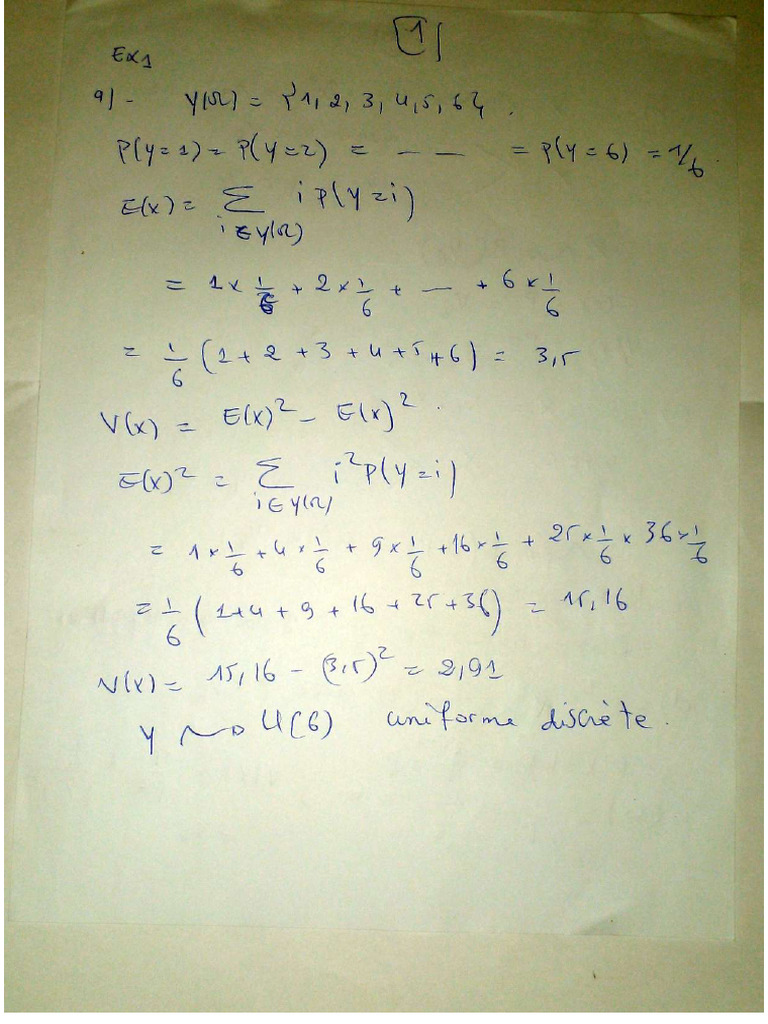 1
Ex1
a)- Y(Ω) = {1, 2, 3, 4, 5, 6}.
P(Y=1) = P(Y=2) = — — = P(Y=6) = 1/6.
E(X) = ∑ i P(Y=i)
i∈Y(Ω)
= 1×1/6 + 2×1/6 + — + 6×1/6
= 1/6 (1+2+3+4+5+6) = 3,5
V(X) = E(X)² - E(X)².
E(X)² = ∑ i² P(Y=i)
i∈Y(Ω)
= 1×1/6 + 4×1/6 + 9×1/6 + 16×1/6 + 25×1/6 × 36×1/6
= 1/6 (1+4+9+16+25+36) = 15,16
V(X) = 15,16 - (3,5)² = 2,91
Y ~> U(6) uniforme discrète.